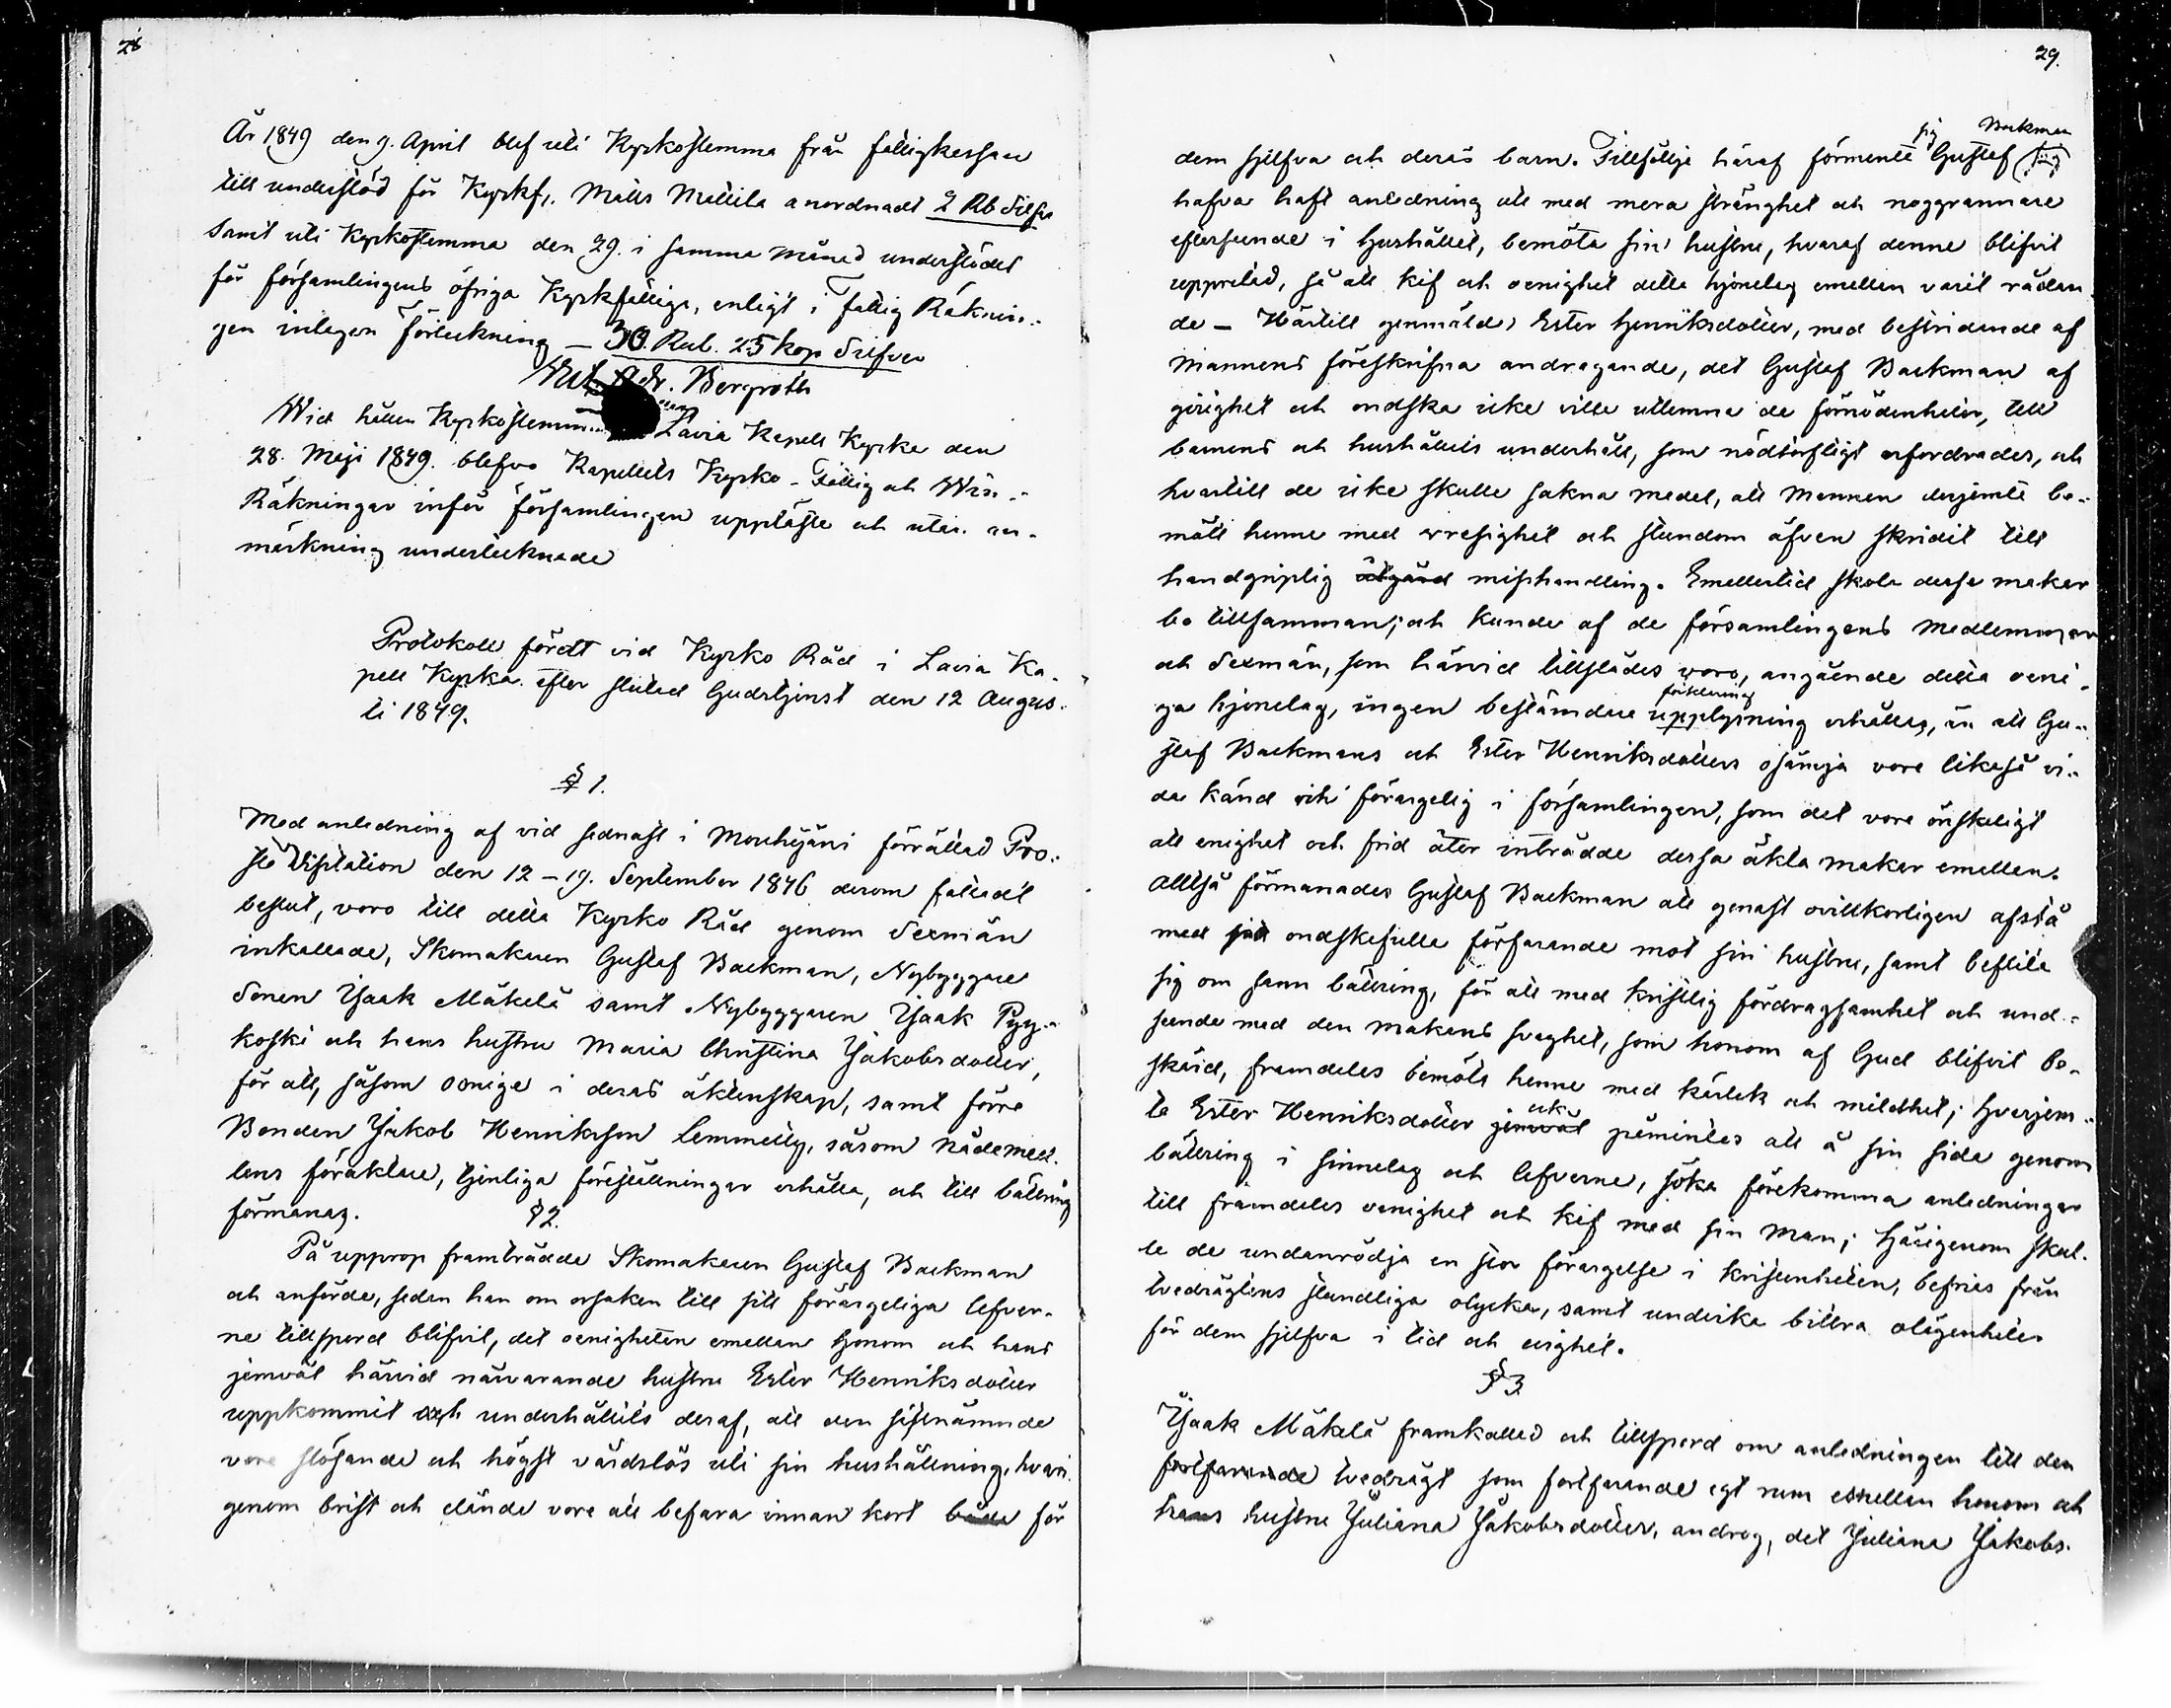 28
År 1849 den 9. April blef uti Kyrkostemma från fattigkassan
till understöd för Kyrkf. Matts Mattila anordnadt 2 Rb Silfver
samt uti Kyrkostemma den 29. i samma månad understödet
för församlingens öfriga Kyrkfattiga, enligt i Fattig Räknin-
gen intagen förteckning — 30 Rub. 25 kop Silfver
Adr. Bergroth
Wid hållen Kyrkostemma Lavia Kapells Kyrka den
28. Maji 1849. blefvo Kapellets Kyrko- Fattig och Win-
Räkningar inför församlingen uppläste och utan an-
märkning undertecknade
Protokoll fördt vid Kyrko Råd i Lavia Ka-
pell Kyrka efter slutad Gudstjenst den 12 Augus-
ti 1849.
§ 1.
Med anledning af vid sednast i Mouhijärvi förrättad Pro-
ste Visitation den 12–19. September 1846 derom fattadt
beslut, voro till detta Kyrko Råd genom Sexmän
inkallade, Skomakaren Gustaf Backman, Nybyggare
Sonen Isaak Mäkelä samt Nybyggaren Isaak Pyy-
koski och hans hustru Maria Christina Jakobsdotter,
för att, såsom oenige i deras äktenskap, samt förre
Bonden Jakob Henriksson Lemmetty, såsom Nådemed-
lens föraktare, tjenliga föreställningar erhålla, och till bättring
förmanas.
§ 2.
På upprop framträdde Skomakaren Gustaf Backman
och anförde, sedan han om orsaken till sitt förargeliga lefver-
ne tillspord blifvit, det oenigheten emellan honom och hans
jemväl härvid närvarande hustru Ester Henriksdotter
uppkommit och underhållits deraf, att den sistnämnde
vore slösande och högst vårdslös uti sin hushållning, hvari-
genom brist och elände vore att befara innan kort både för
29.
dem sjelfva och deras barn. Tillfölje häraf förmente sig Gustaf Backman
hafva haft anledning att med mera stränghet och noggrannare
efterseende i hushållet, bemöta sin hustru, hvaraf denne blifvit
uppretad, så att kif och oenighet detta hjonelag emellan varit rådan-
de — Härtill genmälde Ester Henriksdotter, med bestridande af
Mannens föreskrifna andragande, det Gustaf Backman af
girighet och ondska icke ville utlemna de förnödenheter, till
barnens och hushållets underhåll, som nödtorftigt erfordrades, och
hvartill de icke skulle sakna medel, att Mannen derjemte be-
mött henne med vresighet och stundom äfven skridit till
handgriplig åtgärd misshandling. Emellertid skola dessa makar
bo tillsamman; och kunde af de församlingens Medlemmar
och Sexmän, som härvid tillstädes voro, angående detta oeni-
ga hjonelag, ingen bestämdare förklaring upplysning erhållas, än att Gu-
staf Backmans och Ester Henriksdotters osämja vore likaså vi-
da känd och förargelig i församlingen, som det vore önskeligt
att enighet och frid åter inträdde dessa äkta makar emellan.
Alltså förmanades Gustaf Backman att genast ovillkorligen afstå
med sitt ondskefulla förfarande mot sin hustru, samt beflita
sig om sann bättring, för att med kristlig fördragsamhet och und-
seende med den makans svaghet, som honom af Gud blifvit be-
skärd, framdeles bemöta henne med kärlek och mildhet; hvarjem-
te Ester Henriksdotter jemväl ock påmintes att å sin sida genom
bättring i sinnelag och lefverne, söka förekomma anledningar
till framdeles oenighet och kif med sin man; Härigenom skul-
le de undanrödja en stor förargelse i kristenheten, befrias från
tvedrägtens stundliga olycka, samt undvika bittra olägenheter
för dem sjelfva i tid och evighet.
§ 3.
Isaak Mäkelä framkallad och tillspord om anledningen till den
fortfarande tvedrägt som fortfarande egt rum emellan honom och
hans hustru Juliana Jakobsdotter, androg, det Juliana Jakobs-